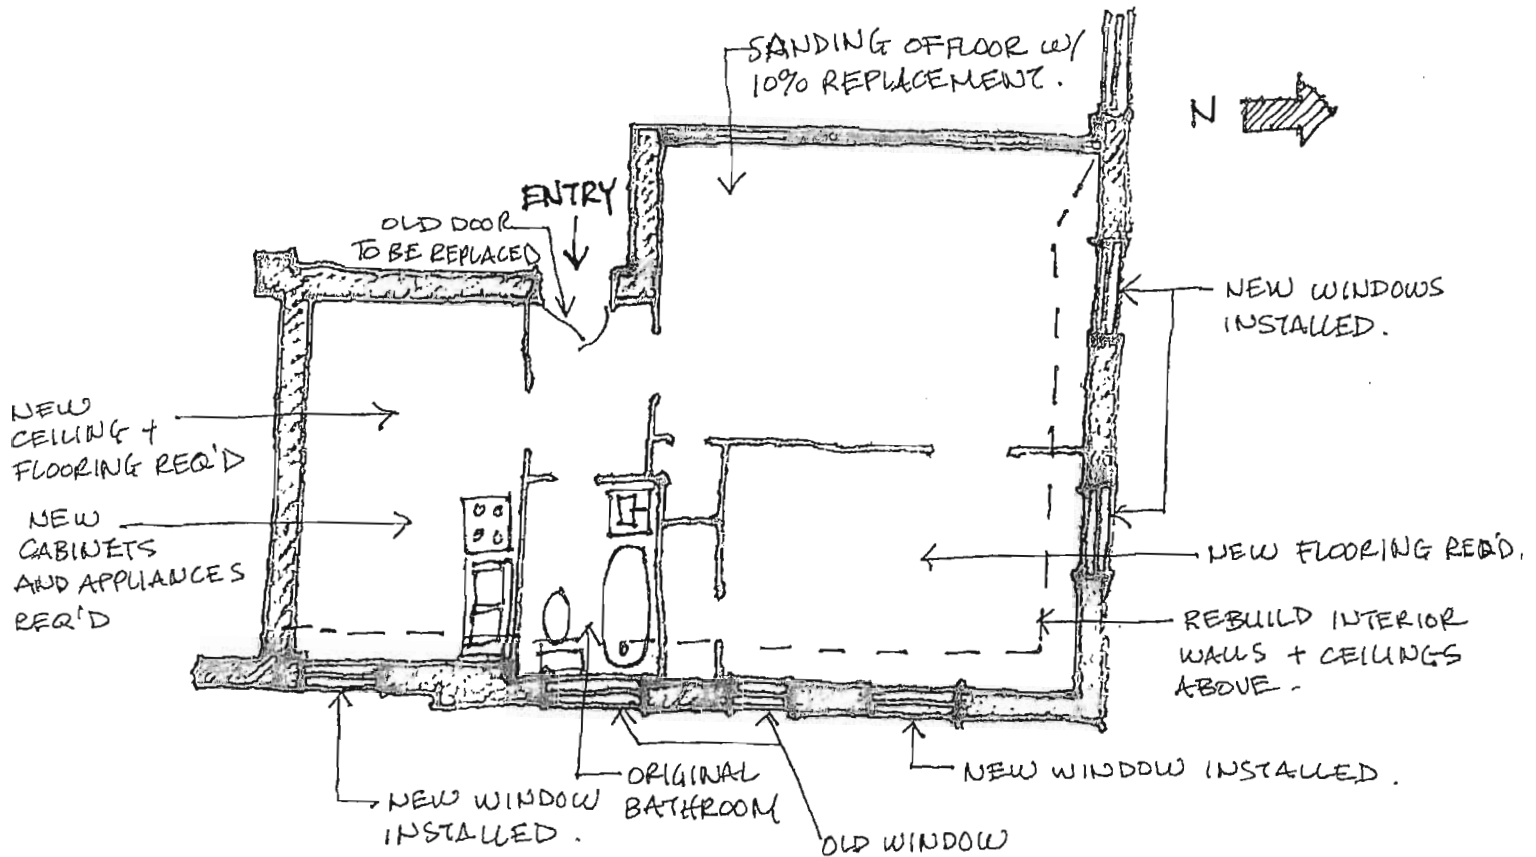 SANDING OF FLOOR W/
10% REPLACEMENT.
N
ENTRY
OLD DOOR
TO BE REPLACED
NEW WINDOWS
INSTALLED.
NEW
CEILING +
FLOORING REQ'D
NEW
CABINETS
AND APPLIANCES
REQ'D
NEW FLOORING REQ'D.
REBUILD INTERIOR
WALLS + CEILINGS
ABOVE.
NEW WINDOW INSTALLED.
ORIGINAL
BATHROOM
NEW WINDOW
INSTALLED.
OLD WINDOW